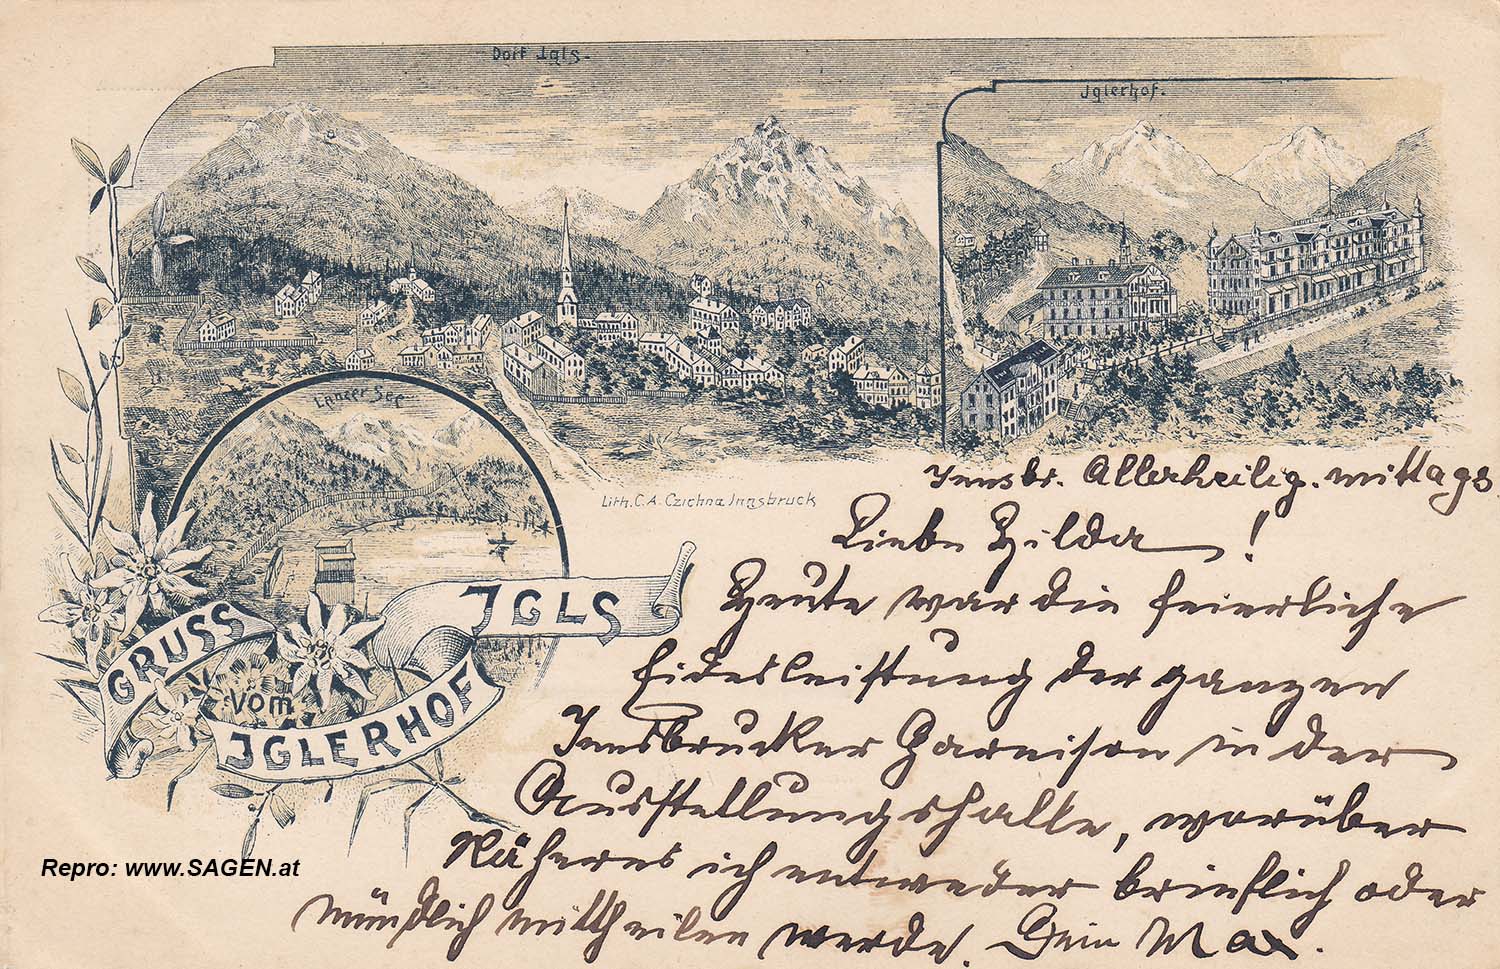 Dorf Igls.
Iglerhof.
Lanser See
Lith. C. A. Czichna Innsbruck
GRUSS
vom
IGLERHOF
IGLS
Innsbr. Allerheilig. mittags
Liebe Hilda!
Heute war die feierliche
Eidesleistung der ganzen
Innsbrucker Garnison in der
Ausstellungshalle, worüber
Näheres ich entweder brieflich oder
mündlich mittheilen werde. Dein Max.
Repro: www.SAGEN.at